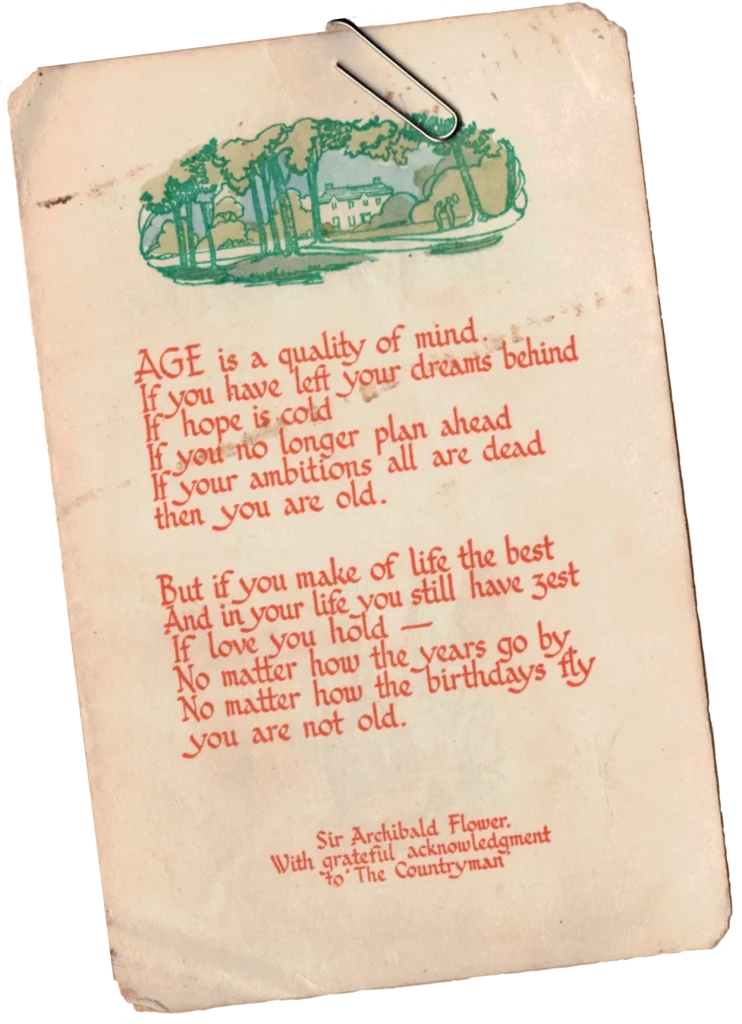 AGE is a quality of mind.
If you have left your dreams behind
If hope is cold
If you no longer plan ahead
If your ambitions all are dead
then you are old.
But if you make of life the best
And in your life you still have zest
If love you hold —
No matter how the years go by
No matter how the birthdays fly
you are not old.
Sir Archibald Flower.
With grateful acknowledgment
to "The Countryman"